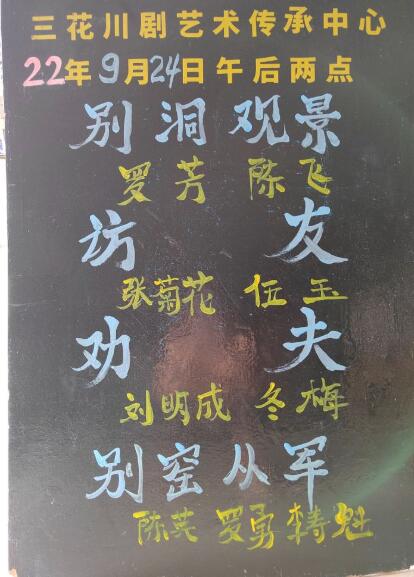 三花川剧艺术传承中心
22年9月24日午后两点
别洞观景
罗芳 陈飞
访友
张菊花 伍玉
劝夫
刘明成 冬梅
别窑从军
陈英 罗勇 李寿魁